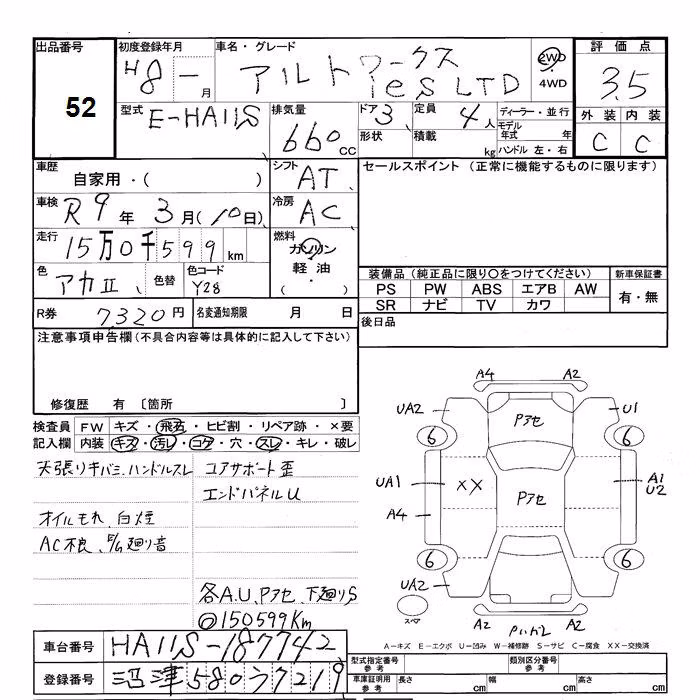 出品番号
52
初度登録年月
H8 - 月
車名・グレード
アルトワークス
ies LTD
2WD
4WD
評価点
3.5
型式
E-HA11S
排気量
660 CC
ドア 3
形状
定員 4人
積載 kg
ディーラー・並行
モデル年式 年
ハンドル 左・右
外装 内装
C C
車歴
自家用・( )
シフト
AT
セールスポイント (正常に機能するものに限ります)
車検
R9年3月(10日)
冷房
AC
走行
15万0千599km
燃料
ガソリン
軽油
( ・ )
色
アカII
色替
色コード
Y28
装備品(純正品に限り〇をつけてください)
新車保証書
PS PW ABS エアB AW
SR ナビ TV カワ
有・無
R券
7,320円
名変通知期限 月 日
後日品
注意事項申告欄(不具合内容等は具体的に記入して下さい)
修復歴 有 〔箇所 〕
検査員 FW キズ・飛石・ヒビ割・リペア跡・×要
記入欄 内装 キズ・汚レ・コゲ・穴・スレ・キレ・破レ
天張りキバミ、ハンドルスレ
コアサポート歪
エンドパネルU
オイルモレ、白煙
AC不良、E/G廻り音
各A.U、Pアセ、下廻りS
◎150599Km
A4 A2
UA2 Pアセ U1
6 6
UA1 XX Pアセ A1
U2
A4
6 6
UA2
スペア
A2 A2
A-キズ E-エクボ U-凹み W-補修跡 S-サビ C-腐食 XX-交換済
車台番号
HA11S-187742
登録番号
沼津580ワ7219
型式指定番号
参考
類別区分番号
参考
車庫証明用
参考
長さ cm 幅 cm 高さ cm